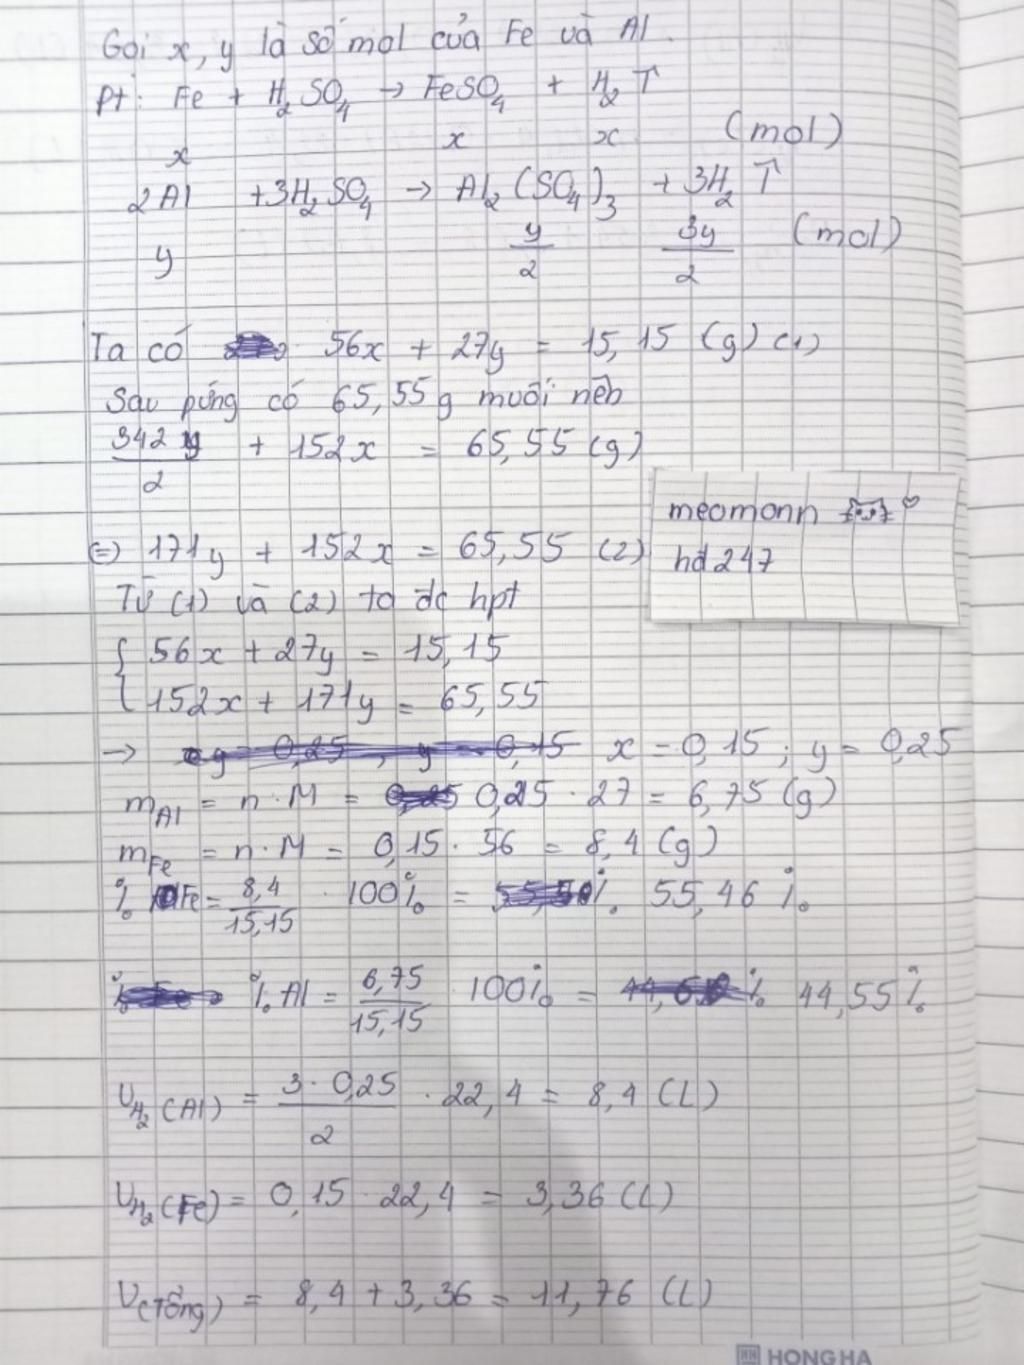 Gọi x, y là số mol của Fe và Al.
Pt: Fe + H₂SO₄ → FeSO₄ + H₂ ↑
x x x (mol)
2Al + 3H₂SO₄ → Al₂(SO₄)₃ + 3H₂ ↑
y y/2 3y/2 (mol)
Ta có 56x + 27y = 15,15 (g) (1)
Sau pứng có 65,55g muối nên
342y/2 + 152x = 65,55 (g)
meomonn
hd247
⇔ 171y + 152x = 65,55 (2)
Từ (1) và (2) ta đc hpt
{ 56x + 27y = 15,15
152x + 171y = 65,55
→ x = 0,15 ; y = 0,25
m_Al = n . M = 0,25 . 27 = 6,75 (g)
m_Fe = n . M = 0,15 . 56 = 8,4 (g)
% Fe = 8,4/15,15 . 100% = 55,46 %
% Al = 6,75/15,15 100% = 44,55%
V_H₂(Al) = 3 . 0,25/2 . 22,4 = 8,4 (L)
V_H₂(Fe) = 0,15 . 22,4 = 3,36 (L)
V(Tổng) = 8,4 + 3,36 = 11,76 (L)
HONG HA